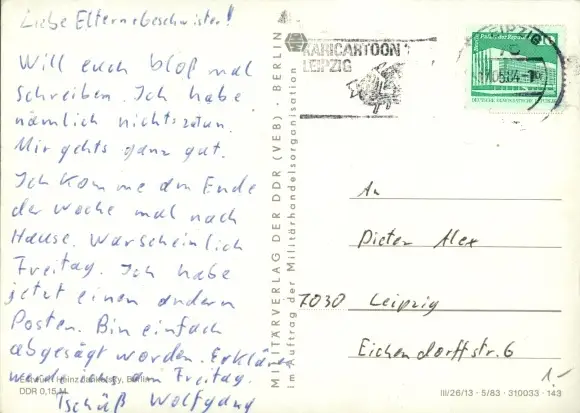 Liebe Eltern + Geschwister!
Will euch bloß mal
schreiben. Ich habe
nämlich nichts zutun.
Mir gehts ganz gut.
Ich komme am Ende
der Woche mal nach
Hause. Warscheinlich
Freitag. Ich habe
jetzt einen andern
Posten. Bin einfach
abgesägt worden. Erklären
werde ich es am Freitag.
Tschüß Wolfgang
Entwurf: Heinz Jankofsky, Berlin
DDR 0,15 M
MILITÄRVERLAG DER DDR (VEB) · BERLIN
im Auftrag der Militärhandelsorganisation
KARICARTOON
LEIPZIG
LEIPZIG
10
DEUTSCHE DEMOKRATISCHE REPUBLIK
An
Dieter Alex
7030 Leipzig
Eichendorffstr. 6
1-
III/26/13 · 5/83 · 310033 · 143